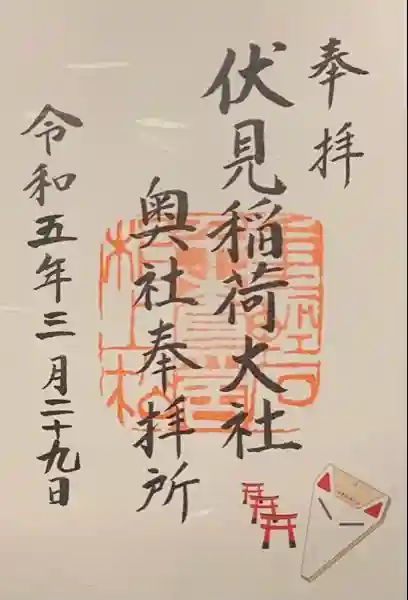 奉拝
伏見稲荷大社
奥社奉拝所
令和五年三月二十九日